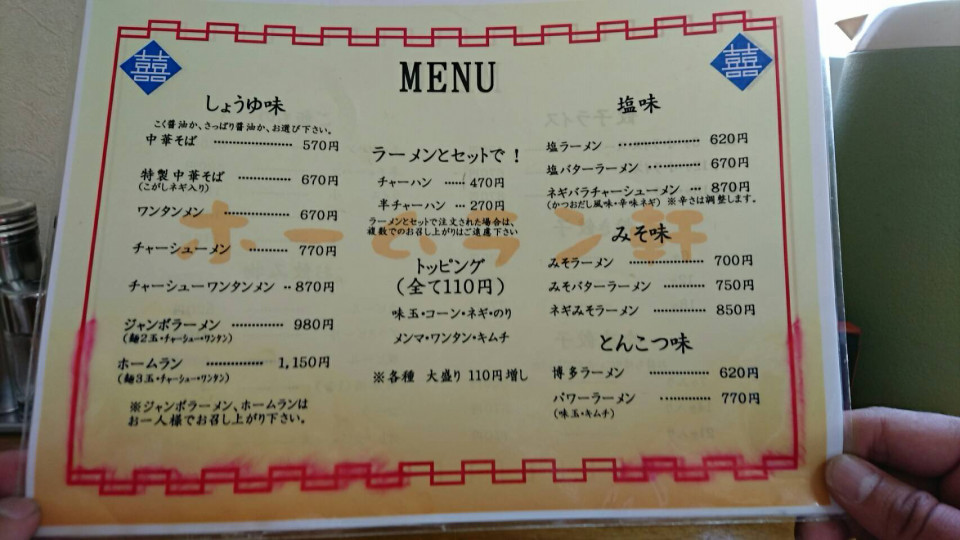 囍
囍
MENU
しょうゆ味
こく醤油か、さっぱり醤油か、お選び下さい。
中華そば ………… 570円
特製中華そば ………… 670円
(こがしネギ入り)
ワンタンメン ………… 670円
チャーシューメン ………… 770円
チャーシューワンタンメン ‥ 870円
ジャンボラーメン ………… 980円
(麺2玉・チャーシュー・ワンタン)
ホームラン ………… 1,150円
(麺3玉・チャーシュー・ワンタン)
※ジャンボラーメン、ホームランは
お一人様でお召し上がり下さい。
ラーメンとセットで！
チャーハン …… 470円
半チャーハン … 270円
ラーメンとセットで注文された場合は、
複数でのお召し上がりはご遠慮下さい
トッピング
(全て110円)
味玉・コーン・ネギ・のり
メンマ・ワンタン・キムチ
※各種 大盛り 110円増し
塩味
塩ラーメン ………… 620円
塩バターラーメン ……… 670円
ネギバラチャーシューメン … 870円
(かつおだし風味・辛味ネギ) ※辛さは調整します。
みそ味
みそラーメン ………… 700円
みそバターラーメン ………… 750円
ネギみそラーメン ………… 850円
とんこつ味
博多ラーメン ………… 620円
パワーラーメン ………… 770円
(味玉・キムチ)
ホームラン軒